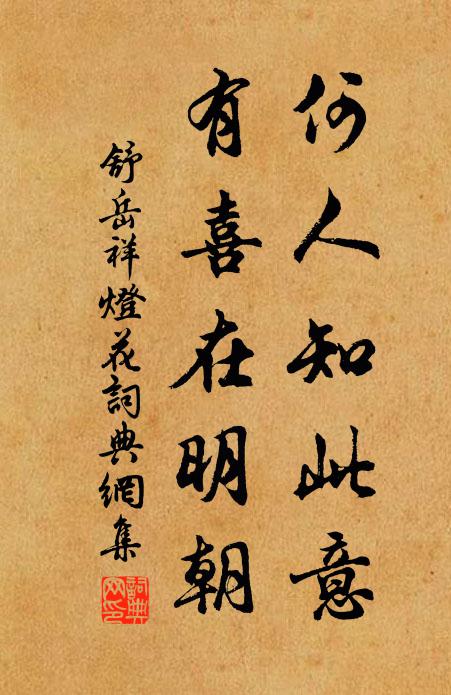 何人知此意
有喜在明朝
舒岳祥燈花詞典網集
詞典網印